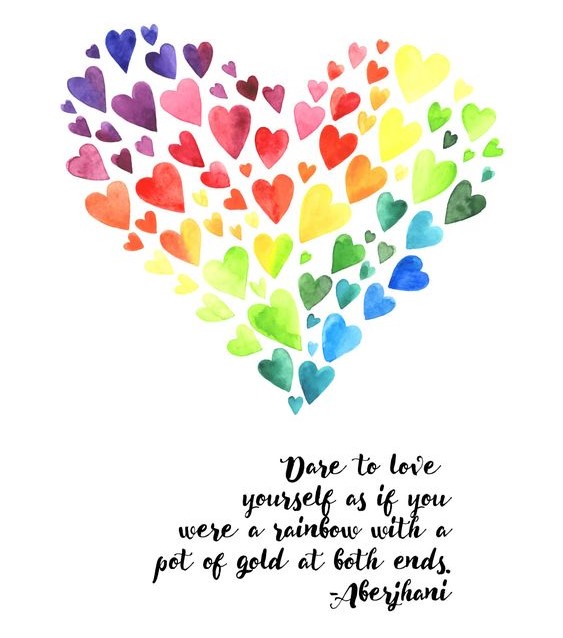 Dare to love
yourself as if you
were a rainbow with a
pot of gold at both ends.
-Aberjhani